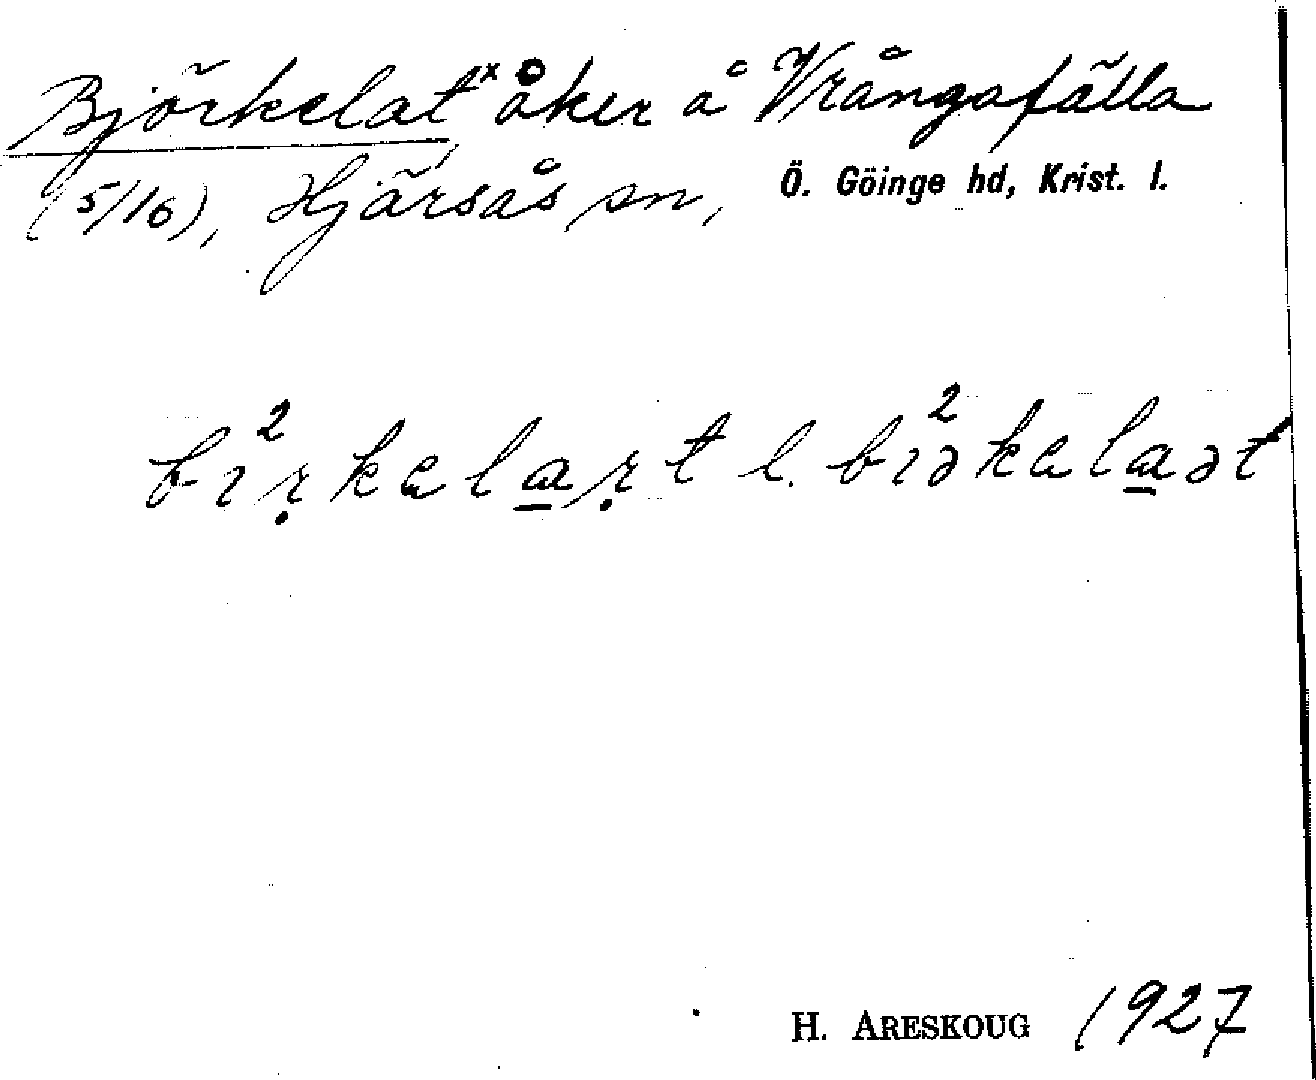 Björkelat, x åker å Vrångafälla
(5/16), Hjärsås sn, Ö. Göinge hd, Krist. l.
bı²ṛkala̲ṛt l. bı²əkala̲ət
H. ARESKOUG 1927